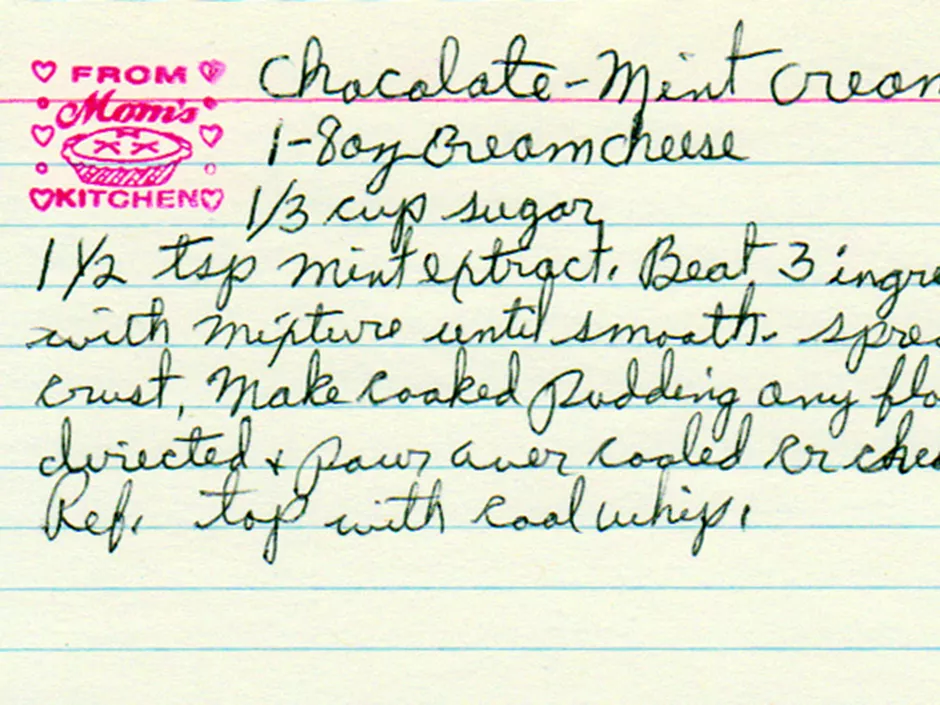 FROM
Mom's
KITCHEN
Chocolate-Mint Cream
1-8oz Creamcheese
1/3 cup sugar
1 1/2 tsp mint extract. Beat 3 ingre
with mixture until smooth. spre
crust, Make cooked pudding any fla
directed & pour over cooled cr chee
Ref. top with cool whip.